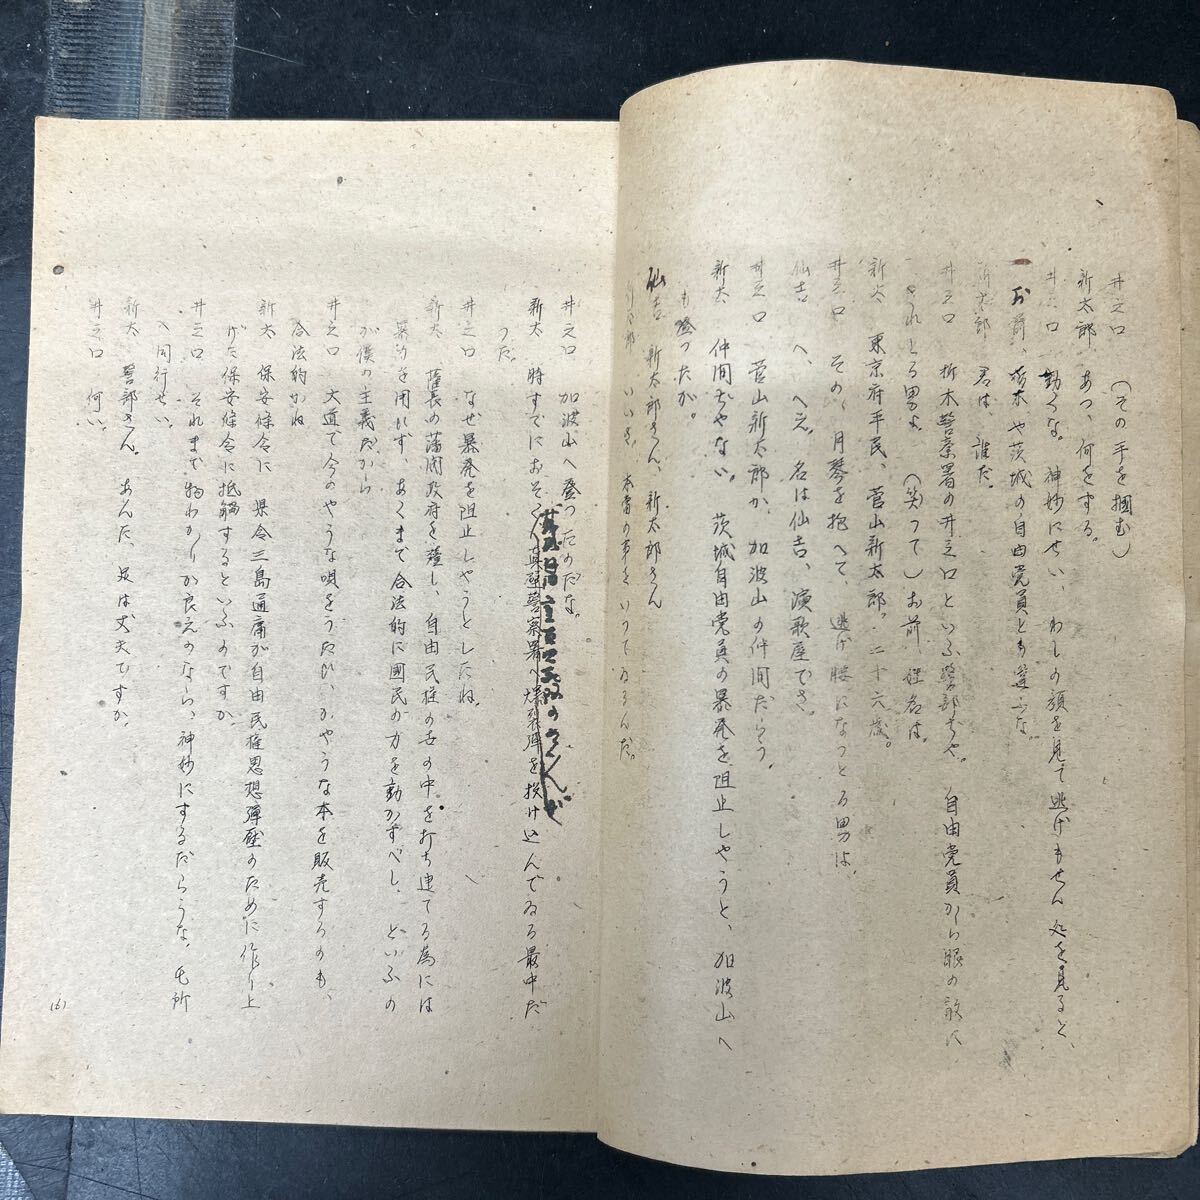 井之口 (その手を掴む)
新太郎 あつ、何をする。
井之口 動くな。神妙にせい、わしの顔を見て逃げもせん処を見ると、
お前、栃木や茨城の自由党員とも違ふな。
新太郎 君は、誰だ。
井之口 栃木警察署の井之口といふ警部ぢや。自由党員から眼の敵に
されとる男よ (笑つて) お前 姓名は。
新太 東京府平民、菅山新太郎。二十六歳。
井之口 その、月琴を抱へて、逃げ腰になつとる男は、
仙吉 へ、へえ。名は仙吉、演歌屋でさ。
井之口 菅山新太郎か、加波山の仲間だらう。
新太 仲間ぢやない。茨城自由党員の暴発を阻止しやうと、加波山へ
も登つたが。
仙吉 新太郎さん、新太郎さん
いいさ、本当の事をいつてゐるんだ。
井之口 加波山へ登つたのだな。
新太 時すでにおそく、真壁警察署へ爆裂弾を投げ込んでゐる最中だ
つた。
井之口 なぜ暴発を阻止しやうとしたね。
新太 薩長の藩閥政府を 自由民権の世の中を打ち建てる為には
暴力を用ひず、あくまで合法的に國民の力を動かすべし、といふの
が僕の主義だから
井之口 大道で今のやうな唄をうたひ、かやうな本を販売するのも、
合法的かね
新太 保安條令に 県令三島通庸が自由民権思想弾圧のために作り上
げた保安條令に抵触するといふのですか。
井之口 それまで物わかりが良えのなら、神妙にするだらうな。屯所
へ同行せい。
新太 警部さん。あんた、足は丈夫ですか。
井之口 何い。
(6)